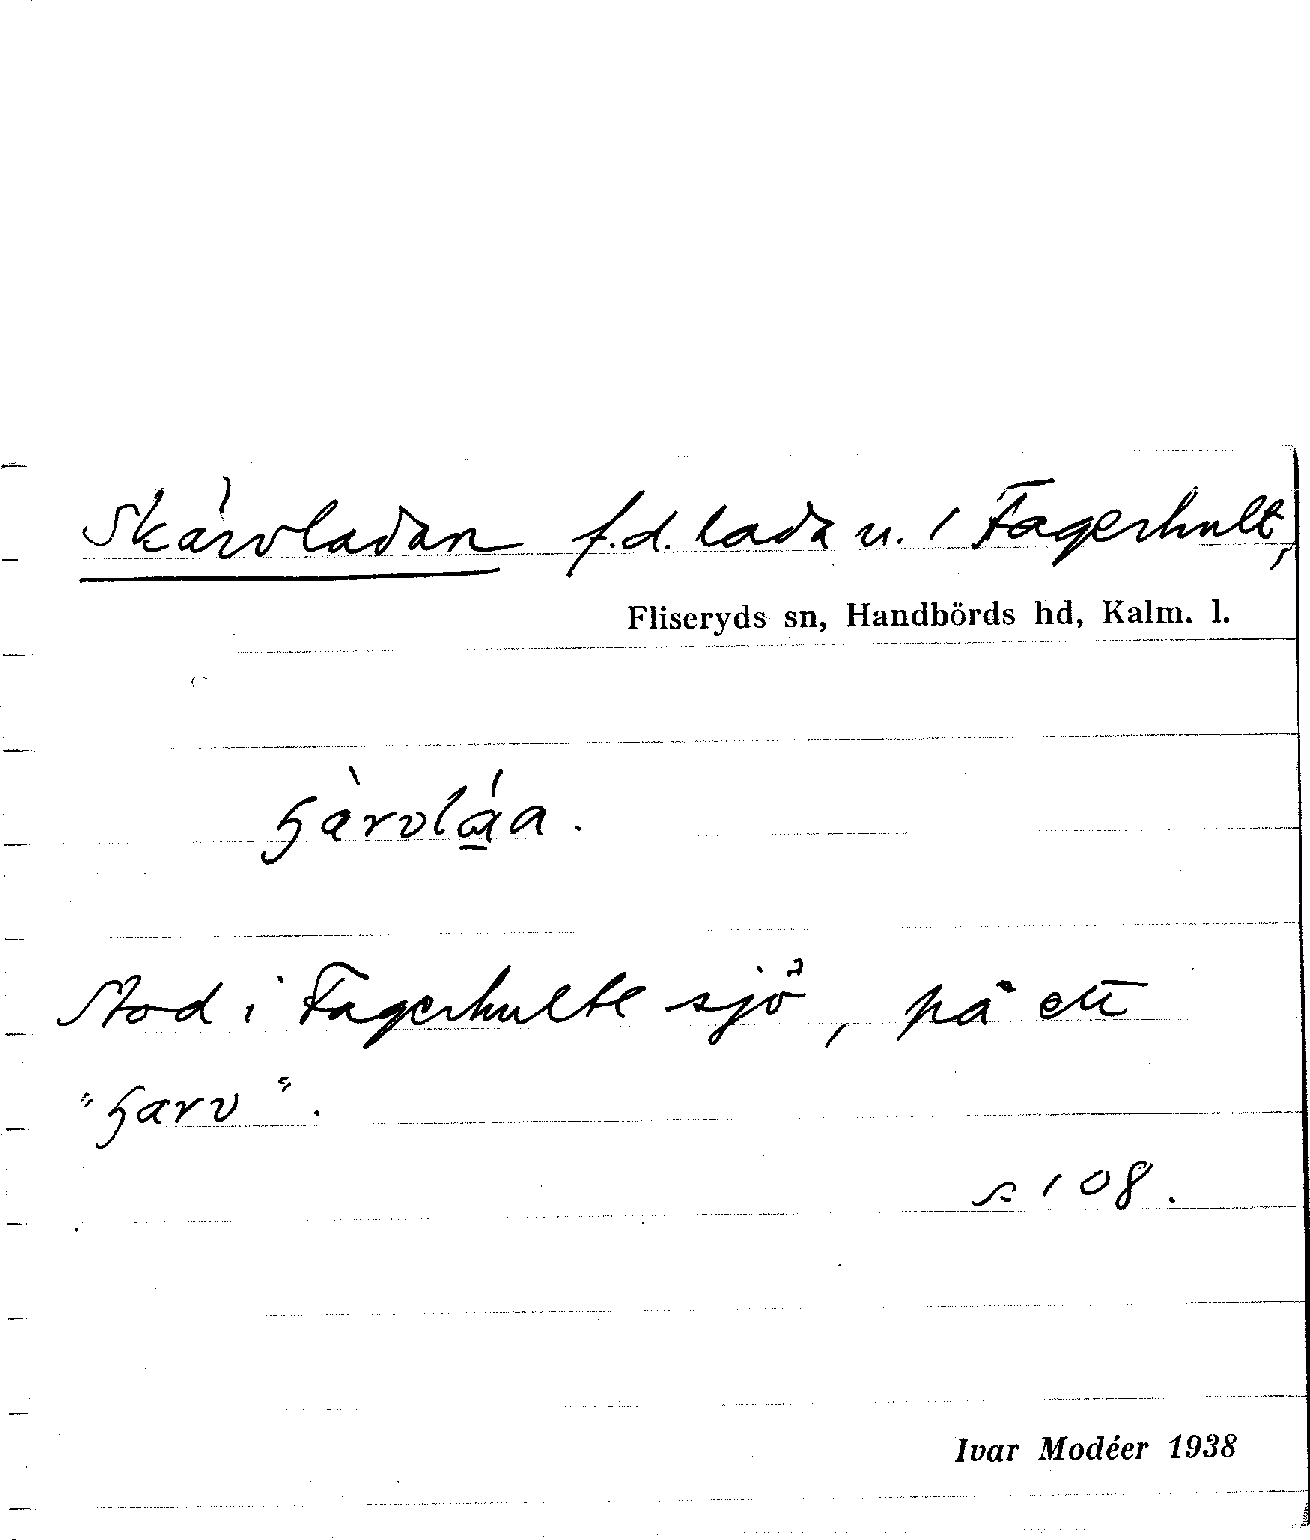 Skärvladan f.d. lada u. 1 Fagerhult,
Fliseryds sn, Handbörds hd, Kalm. l.
ʂàrvlá̱a.
Stod i Fagerhulte sjö, på ett
"ʂarv".
s. 108.
Ivar Modéer 1938